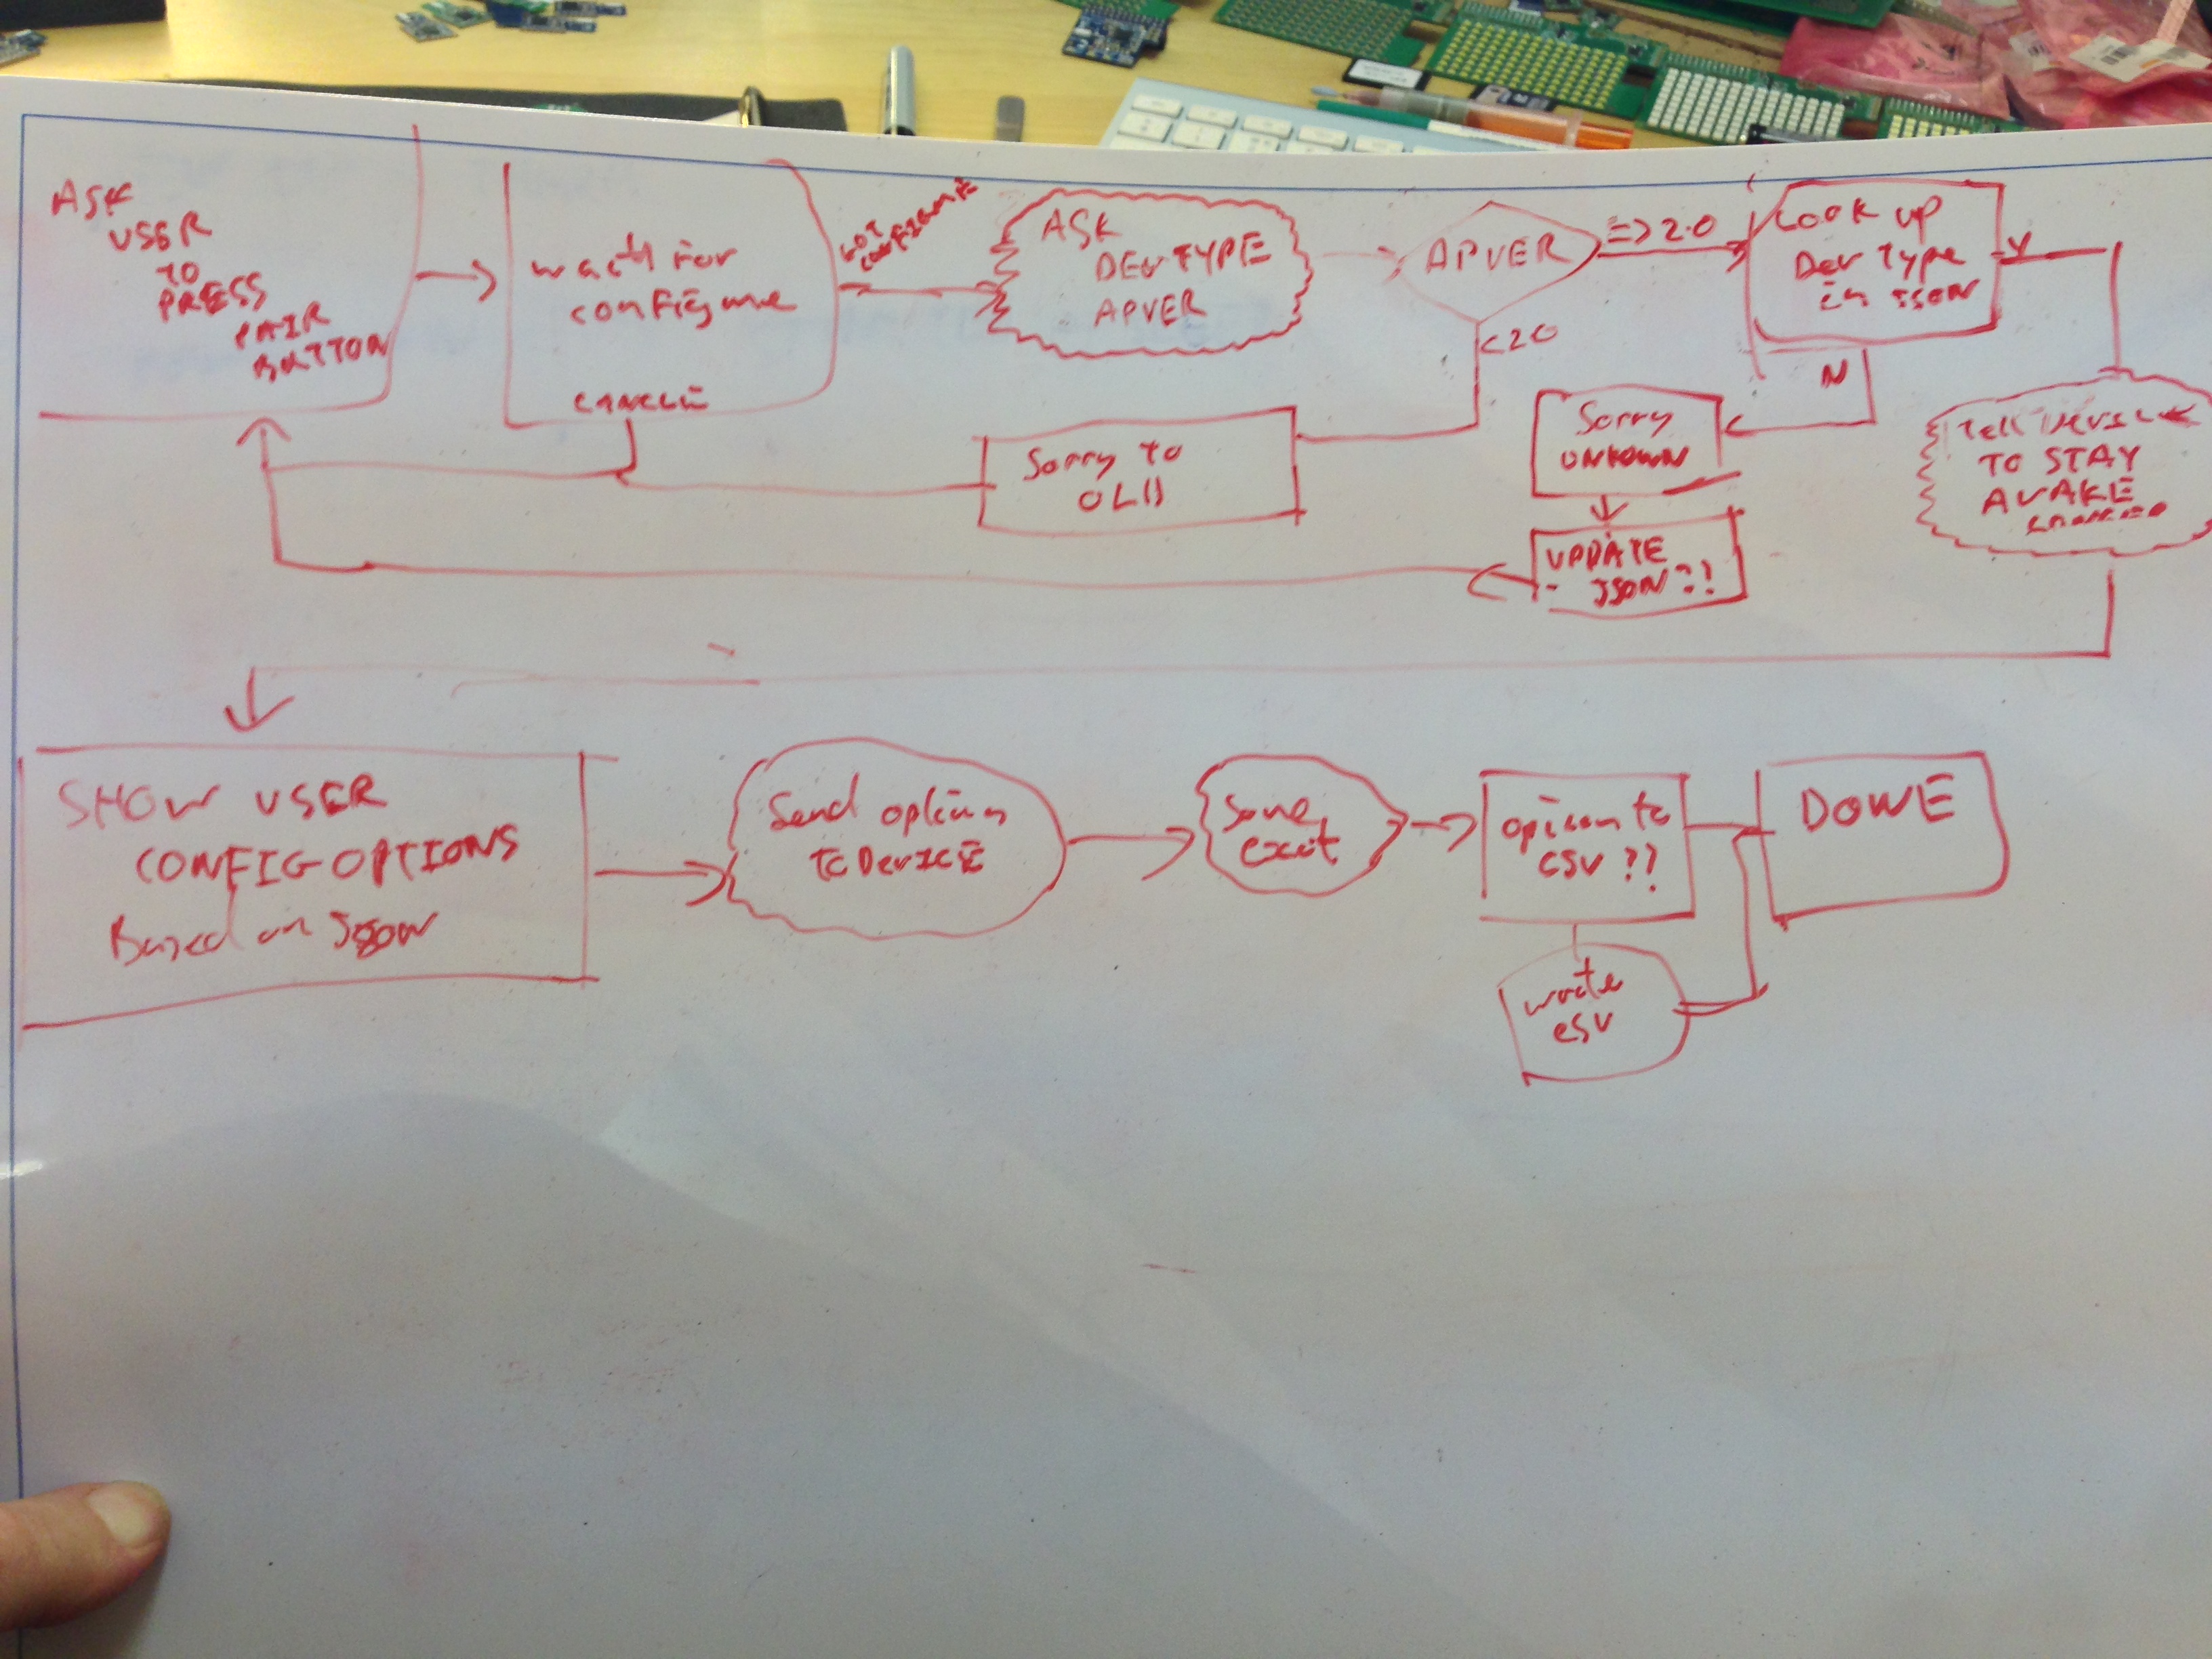 ASK
USER
TO
PRESS
PAIR
BUTTON
wait for
configure
CANCLE
GOT
CONFIGME
ASK
DEV TYPE
APVER
APVER
=>2.0
<20
Look up
Dev Type
in JSON
Y
N
Sorry to
OLD
Sorry
UNKOWN
UPDATE
JSON??
Tell DEVICE
TO STAY
AWAKE
SHOW USER
CONFIG OPTIONS
Based on JSON
Send options
To DEVICE
Save
exit
CSV ??
write
csv
DONE